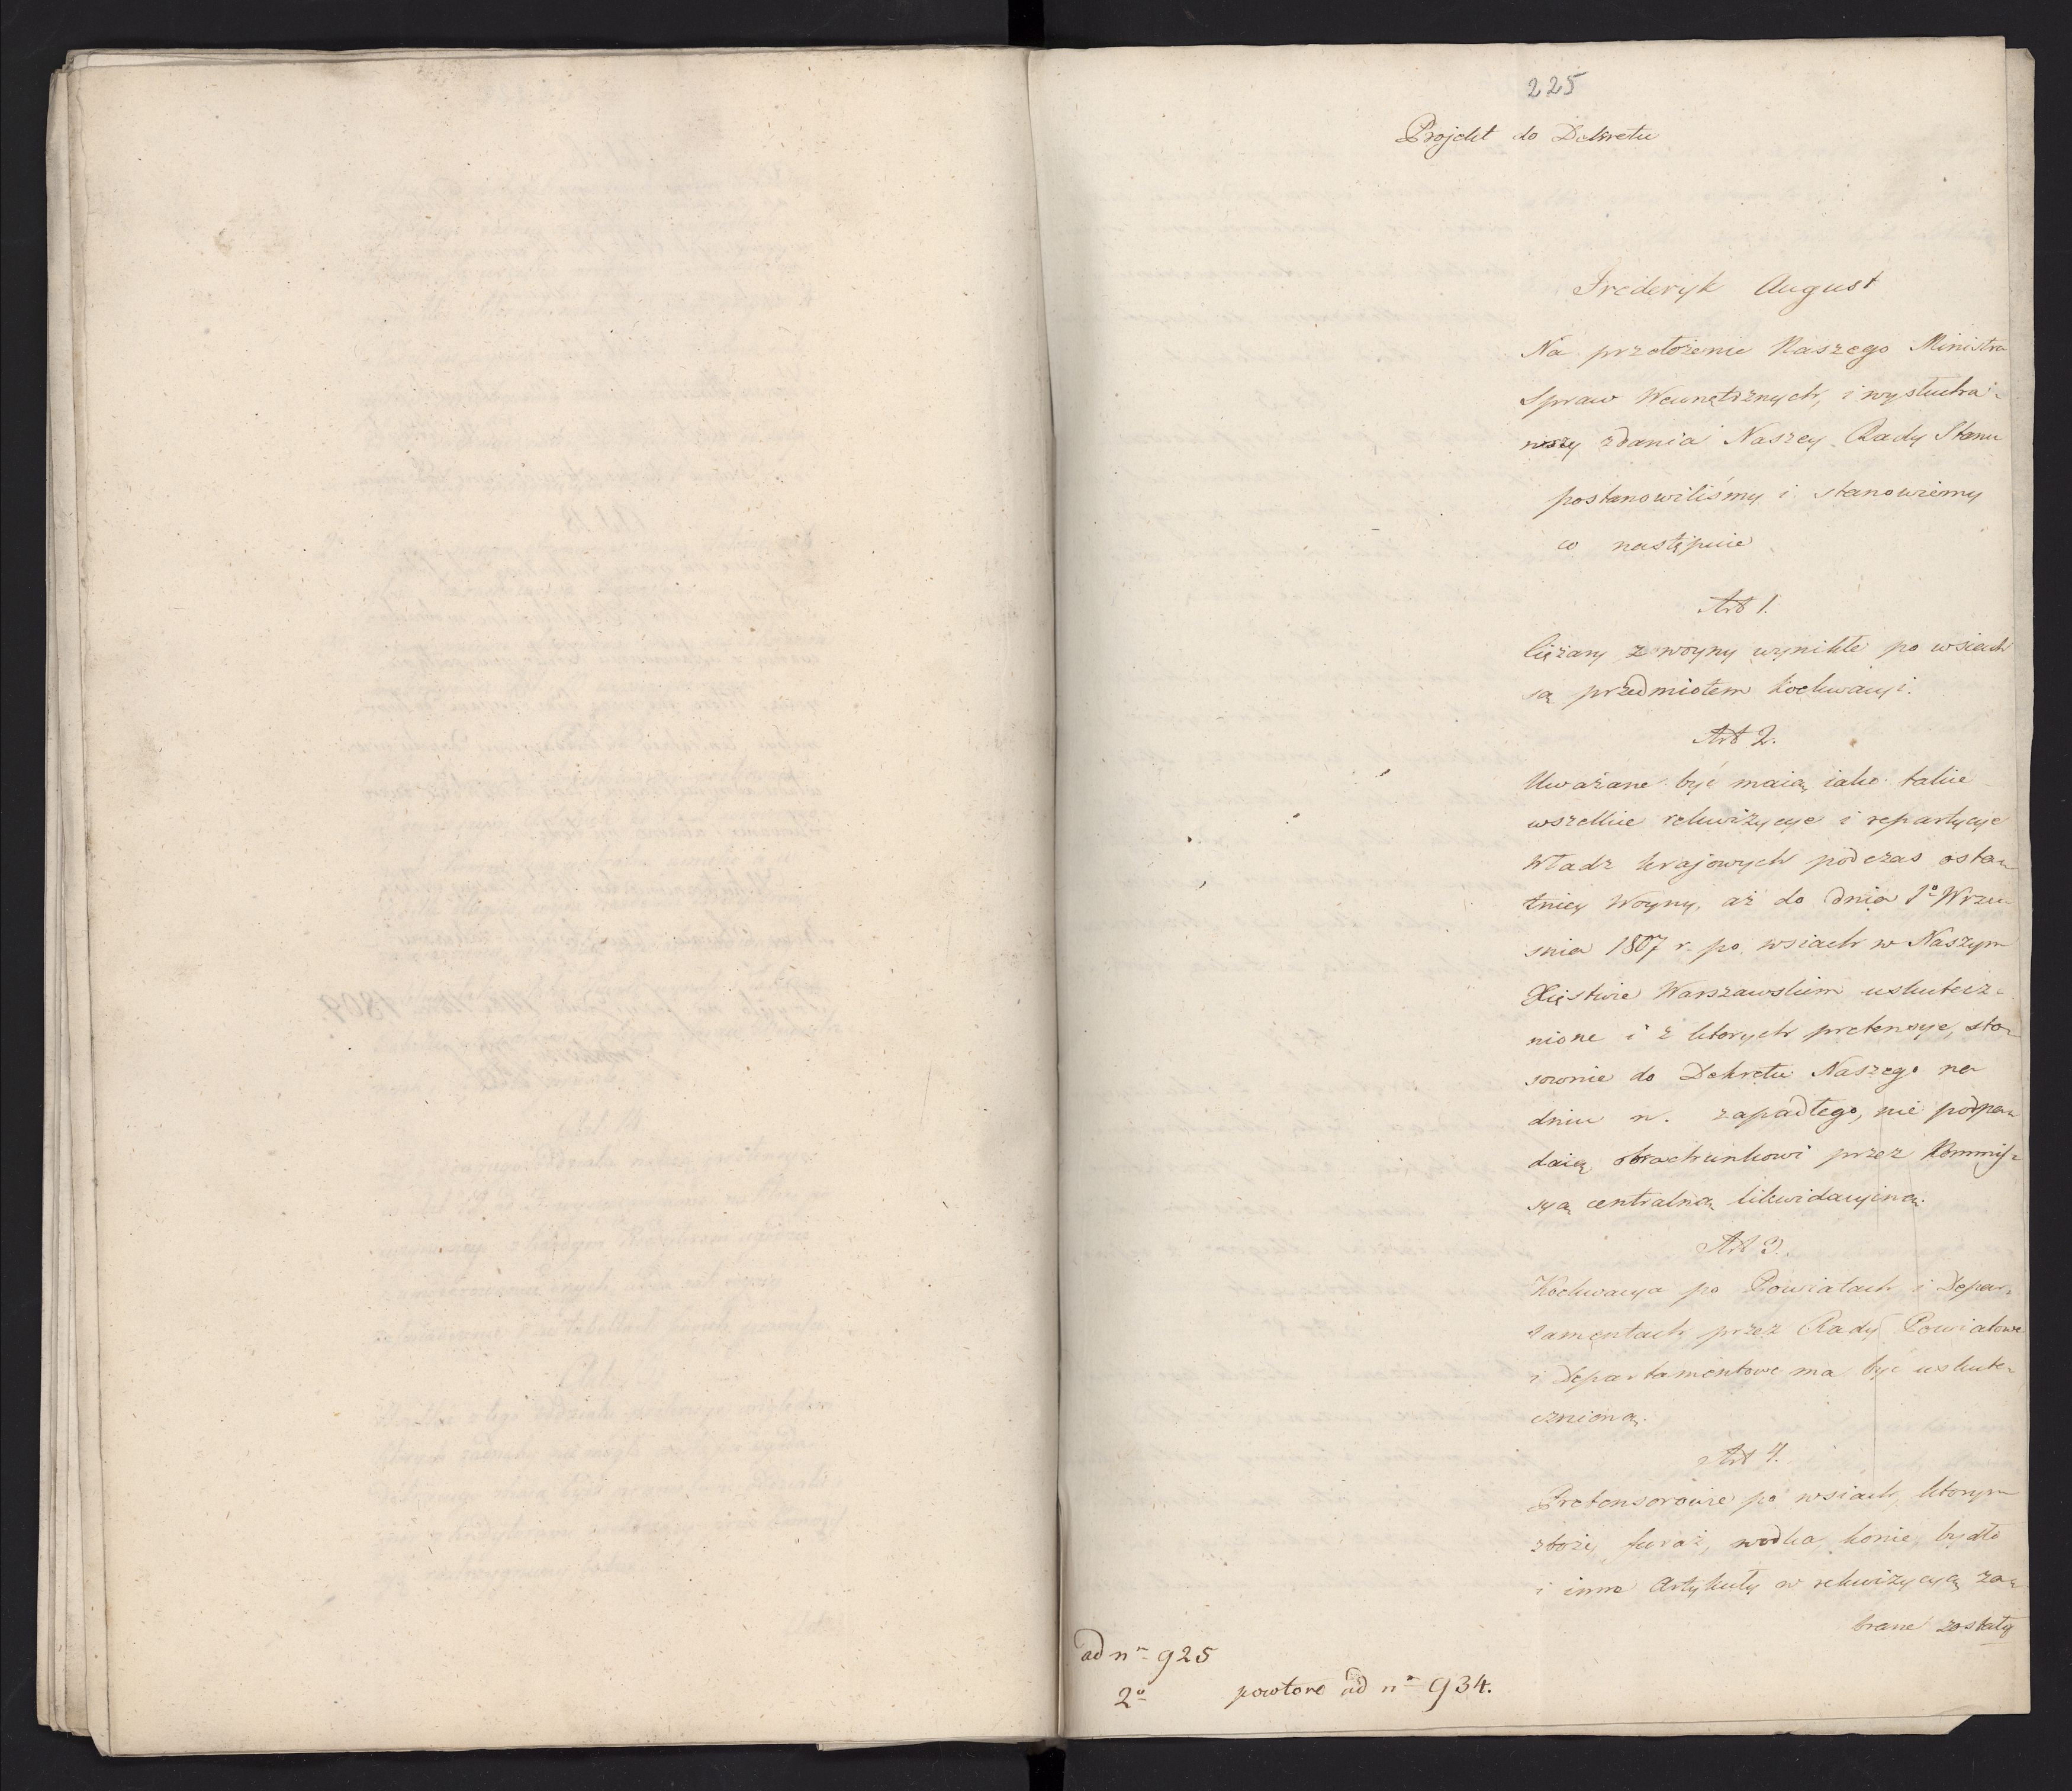 225
Projekt do Dekretu
Frederyk August
Na przełożenie Naszego Ministra
Spraw Wewnętrznych, i wysłucha-
wszy zdania Naszey Rady Stanu
postanowiliśmy i stanowiemy
co następuie
Art 1.
Ciężary z woyny wynikłe po wsiach
są przedmiotem koekwacyi.
Art 2.
Uważane być maią iako takie
wszelkie rekwizycye i repartycye
Władz krajowych podczas osta-
tniey Woyny, aż do dnia 1º Wrze-
snia 1807 r. po wsiach w Naszym
Xięstwie Warszawskim uskutecz-
nione i z ktorych pretensye, sto-
sownie do Dekretu Naszego na
dniu n. zapadłego, nie podpa-
daią obrachunkowi przez Kommis-
syą centralną likwidacyiną.
Art 3.
Koekwacya po Powiatach i Depar-
tamentach przez Rady Powiatowe
i Departamentowe ma być uskute-
cznioną.
Art 4.
Pretensorowie po wsiach, ktorym
zboże, furaż, wodka, konie, bydło
i inne Artykuły w rekwizycyą za-
brane zostały
ad nº 925
2º powtore ad nº 934.